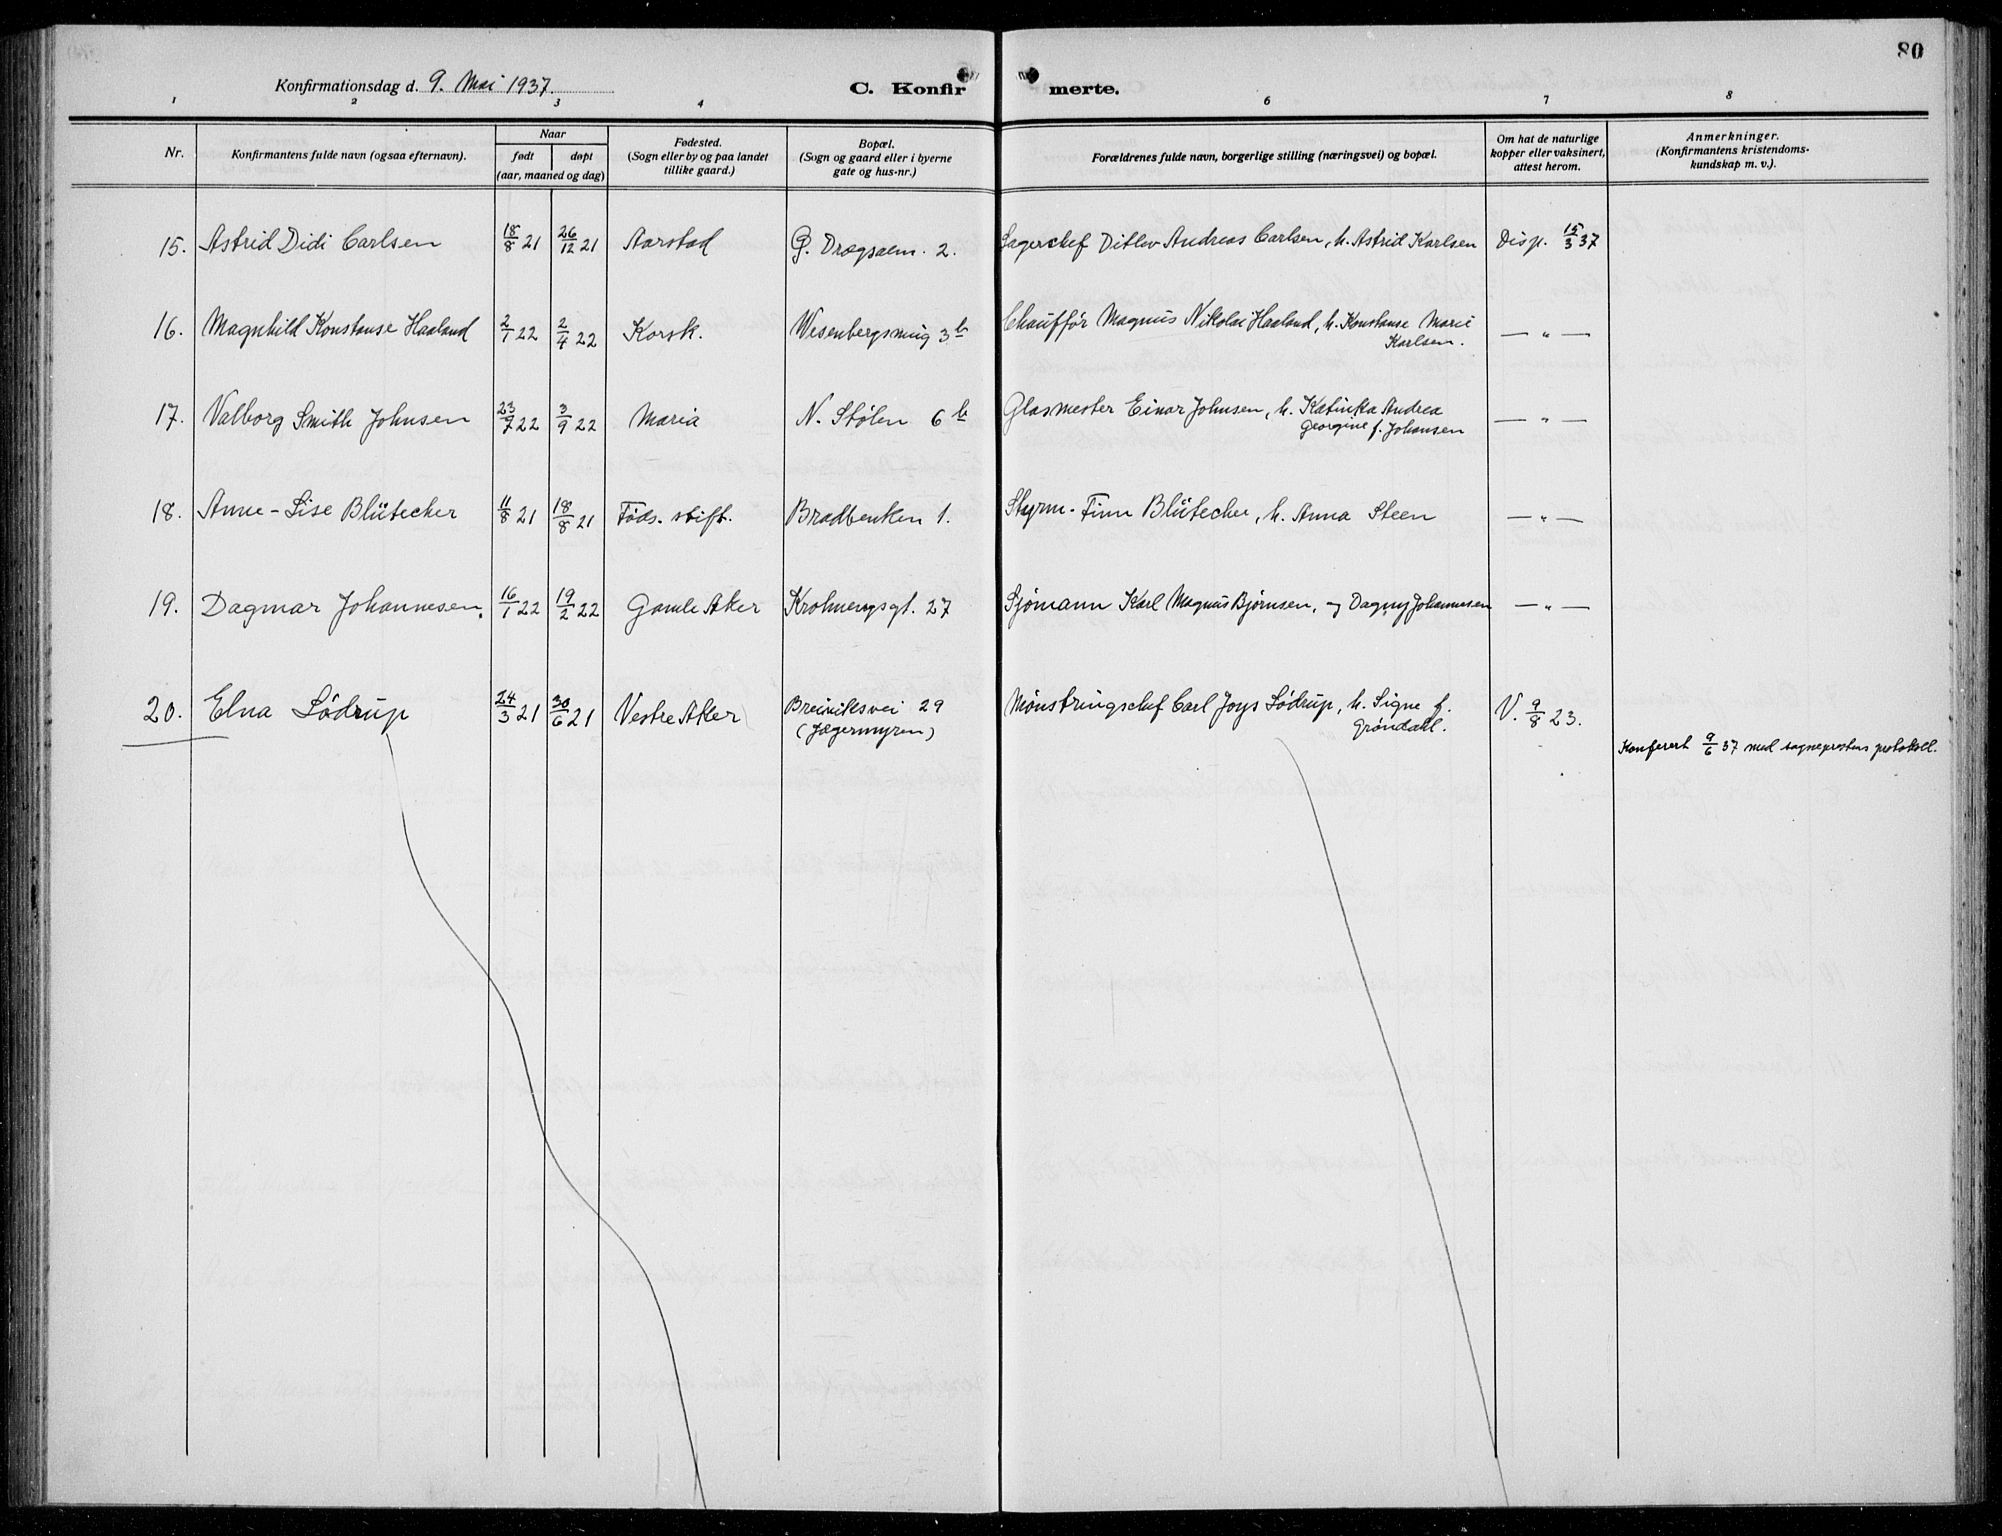 80
Konfirmationsdag d. 9. Mai 1937.
C. Konfirmerte.
1 2 3 4 6 7 8
Nr.
Konfirmantens fulde navn (ogsaa efternavn).
Naar
født døpt
(aar, maaned og dag)
Fødested.
(Sogn eller by og paa landet
tillike gaard.)
Bopæl.
(Sogn og gaard eller i byerne
gate og hus-nr.)
Forældrenes fulde navn, borgerlige stilling (næringsvei) og bopæl.
Om hat de naturlige
kopper eller vaksinert,
attest herom.
Anmerkninger.
(Konfirmantens kristendoms-
kundskap m. v.).
15. Astrid Didi Carlsen 18/8 21 26/12 21 Aarstad Dragsalm. 2. Lagerchef Ditlev Andreas Carlsen, h. Astrid Karlsen Disp. 15/3 37
16. Magnhild Konstanse Haaland 2/1 22 2/4 22 Korsk. Wesenbergsmug 3b Chauffør Magnus Nikolai Haaland, h. Konstanse Marie
Karlsen. — " —
17. Valborg Smith Johnsen 23/7 22 3/9 22 Maria N. Stølen 6b Glasmester Einar Johnsen, h. Katinka Andrea
Georgine f. Johansen — " —
18. Anne-Lise Blütecher 11/8 21 18/8 21 Føds. stift. Bradbenken 1. Styrm. Finn Blütecher, h. Anna Steen — " —
19. Dagmar Johannesen. 16/1 22 19/2 22 Gamle Aker Krohnengsgt. 27 Sjømann Karl Magnus Bjørnsen, og Dagny Johannesen — " —
20. Elna Lødrup 24/3 21 30/6 21 Vestre Aker Breiviksvei 29
(Jægermyren) Mønstringschef Carl Joys Lødrup, h. Signe f.
Grøndahl. V. 9/8 23.
Konferert 9/6 37 med sogneprestens protokoll.